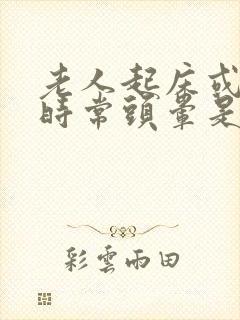 老人起床或
時常頭暈是
彩雲雨田